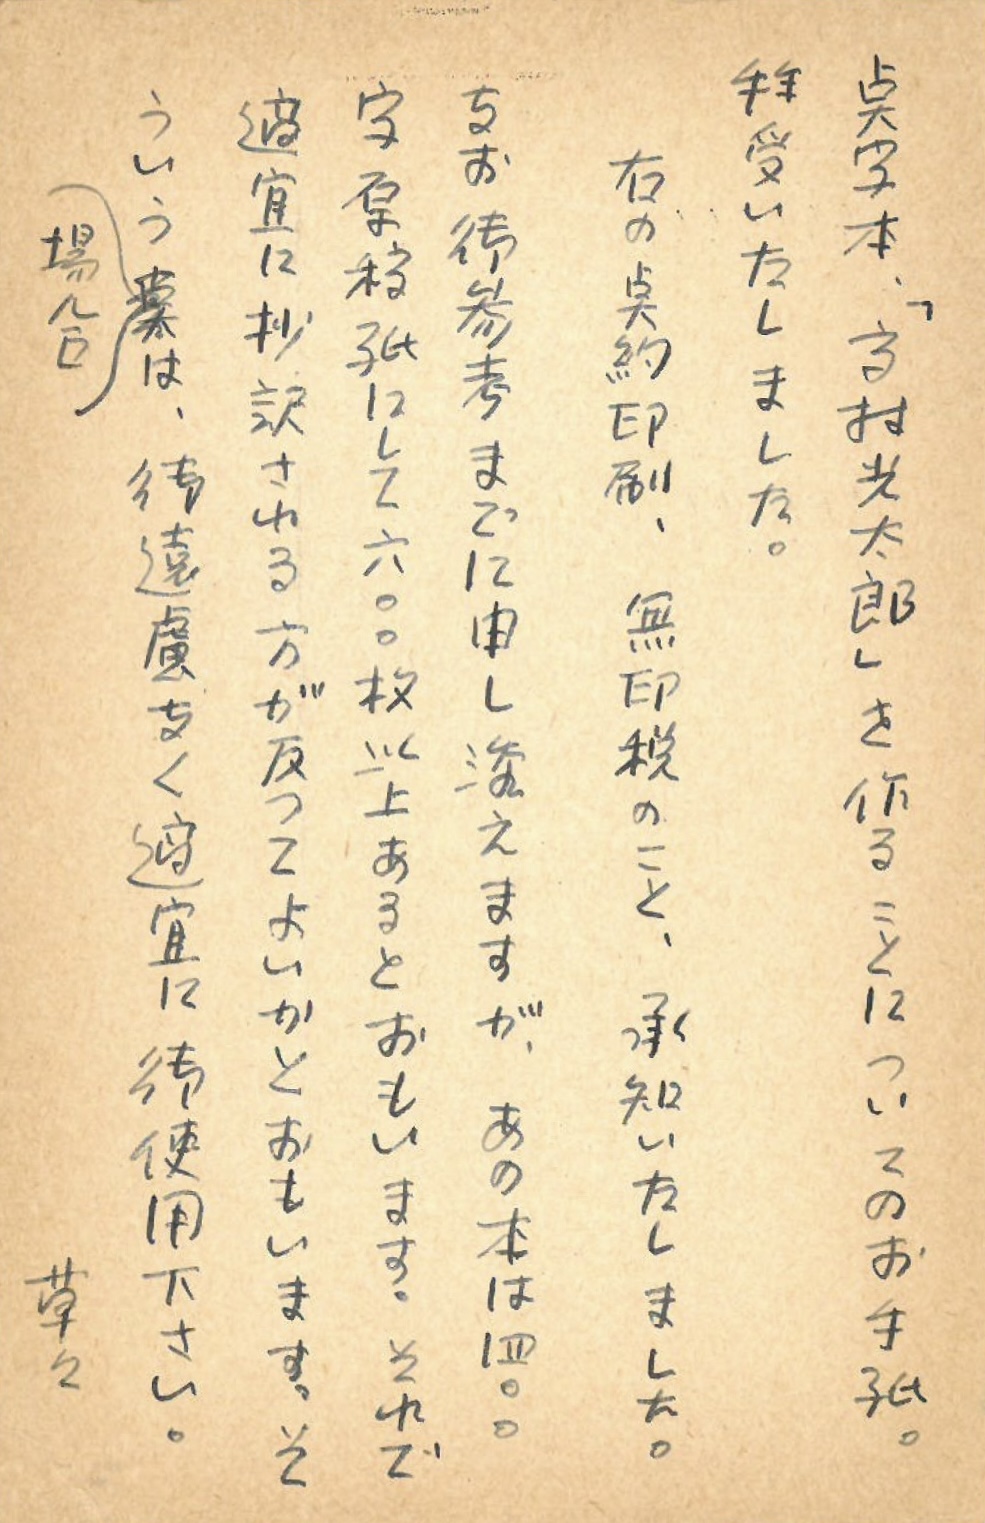 点字本、「高村光太郎」を作ることについてのお手紙。
拝受いたしました。
右の点約印刷、無印税のこと、承知いたしました。
なお御参考までに申し添えますが、あの本は四〇〇
字原稿紙にして六〇〇枚以上あるとおもいます。それで
適宜に抄訳される方が反ってよいかとおもいます。そ
ういう は、御遠慮なく適宜に御使用下さい。
場合
草々